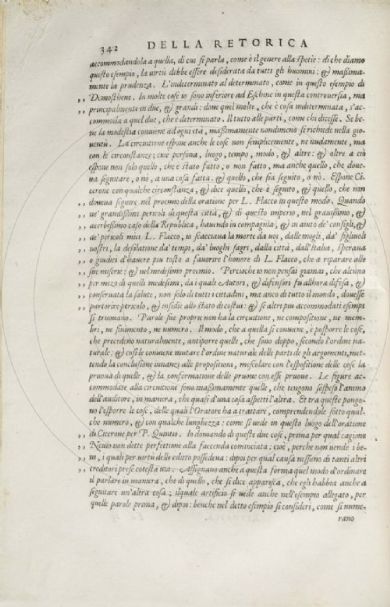 342 DELLA RETORICA
accommodandola a quella, di cui si parla, come è il genere alla spetie: di che diamo
questo esempio, la virtù debbe essere desiderata da tutti gli huomini: & massima-
mente la prudenza. L'indeterminato al determinato, come in questo esempio di
Demosthene. In molte cose io sono inferiore ad Eschine in questa controversia, ma
principalmente in due, & grandi: dove quel molte, che è cosa indeterminata, s'ac-
commoda a quel due, che è determinato. Il tutto alle parti, come chi dicesse. Se be-
ne la modestia conviene ad ogni età, massimamente nondimeno si richiede nella gio-
ventù. La circuitione espone anche le cose non semplicemente, ne nudamente, ma
con le circostanze; cioè persona, luogo, tempo, modo, & altre: & oltre a ciò
espone non solo quello, che è stato fatto, o non fatto, ma anche quello, che dove-
va seguitare, o nò, a una cosa fatta, & quello, che sia seguito, o nò. Espone Ci-
cerone con qualche circostanza, & dice quello, che è seguito, & quello, che non
doveva seguire, nel proemio della oratione per L. Flacco in questo modo. Quando
ne' grandissimi pericoli di questa città, & di questo imperio, nel gravissimo, &
acerbissimo caso della Republica, havendo in compagnia, & in aiuto de' consigli, &
de' pericoli miei L. Flacco, io scacciava la morte da voi, dalle mogli, da' figliuoli
vostri, la desolatione da' tempi, da' luoghi sagri, dalla città, dall'Italia, sperava
o giudici d'havere più tosto a favorire l'honore di L. Flacco, che a riparare alle
sue miserie: & nel medesimo proemio. Percioche io non pensai giamai, che alcuna
per mezo di quelli medesimi, da i quale Autori, & difensori fu allhora difesa, &
conservata la salute, non solo di tutti i cittadini, ma anco di tutto il mondo, dovesse
partorire pericolo, & insidie allo stato di costui: & si altri più accommodati esempi
si truovano. Parole sue proprie non ha la circuitione, ne compositione, ne mem-
bri, ne finimento, ne numero. Il modo, che a quella si conviene, è posporre le cose,
che precedono naturalmente, anteporre quelle, che sono dopo, secondo l'ordine na-
turale: & così le conviene mutare l'ordine naturale delle parti de gli argomenti, met-
tendo la conclusione innanzi alle propositioni, mescolare con l'espositione delle cose la
pruova di quelle, & la confermatione delle prove con esse pruove. Le figure ac-
commodate alla circuitione sono massimamente quelle, che tengono sospeso l'animo
dell'auditore, in maniera, che quasi d'una cosa aspetti l'altra. Et tra queste pongo-
no l'esporre le cose, delle quali l'Oratore ha a trattare, comprendendole sotto qual-
che numero, & con qualche lunghezza: come si vede in questo luogo dell'oratione
di Cicerone per P. Quintio. Io domando di queste due cose, prima per qual cagione
Nevio non dette perfettione alla faccenda cominciata; cioè, perche non vende i be-
ni, i quali per virtù dello editto possedeva: dipoi per qual causa nessuno di tanti altri
creditori prese cotesta via. Assegnano anche a questa forma quel modo d'ordinare
il parlare in maniera, che di quello, che si dice apparisca, che egli habbia anche a
seguitare un'altra cosa; ilquale artificio si vede anche nell'esempio allegato, per
quelle parole prima, & dipoi: benche nel detto esempio si consideri, come si nume-
rano